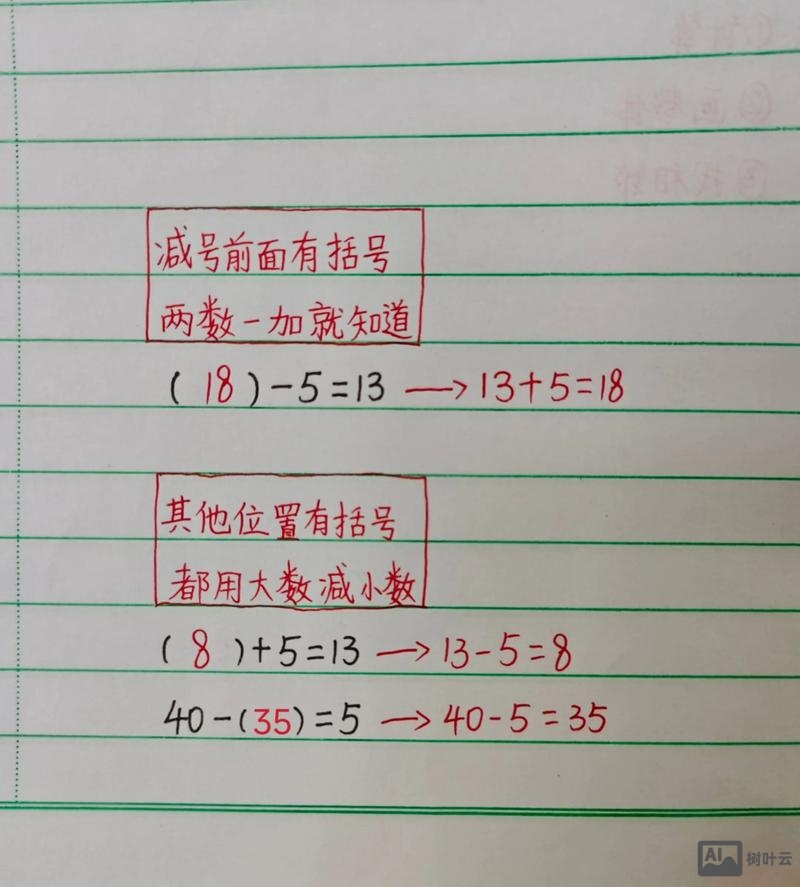 减号前面有括号
两数一加就知道
( 18 )-5=13 → 13+5=18
其他位置有括号
都用大数减小数
( 8 )+5=13 → 13-5=8
40-(35)=5 → 40-5=35
AI 树叶云